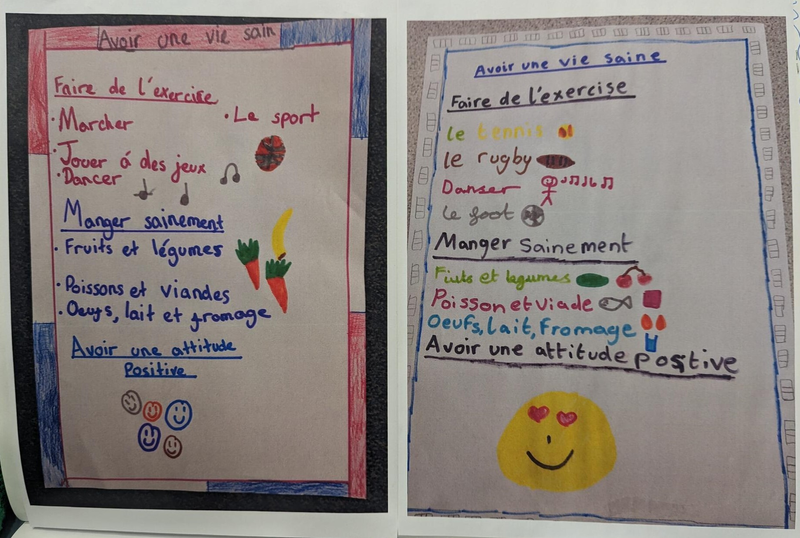 Avoir une vie sain
Faire de l'exercise
· Marcher
· Le sport
· Jouer á des jeux
· Dancer
Manger sainement
· Fruits et légumes
· Poissons et viandes
· Oeufs, lait et fromage
Avoir une attitude
Positive
Avoir une vie saine
Faire de l'exercise
le tennis
le rugby
Danser
le foot
Manger sainement
Fiuts et legumes
Poisson et viade
Oeufs, lait, Fromage
Avoir une attitude positive